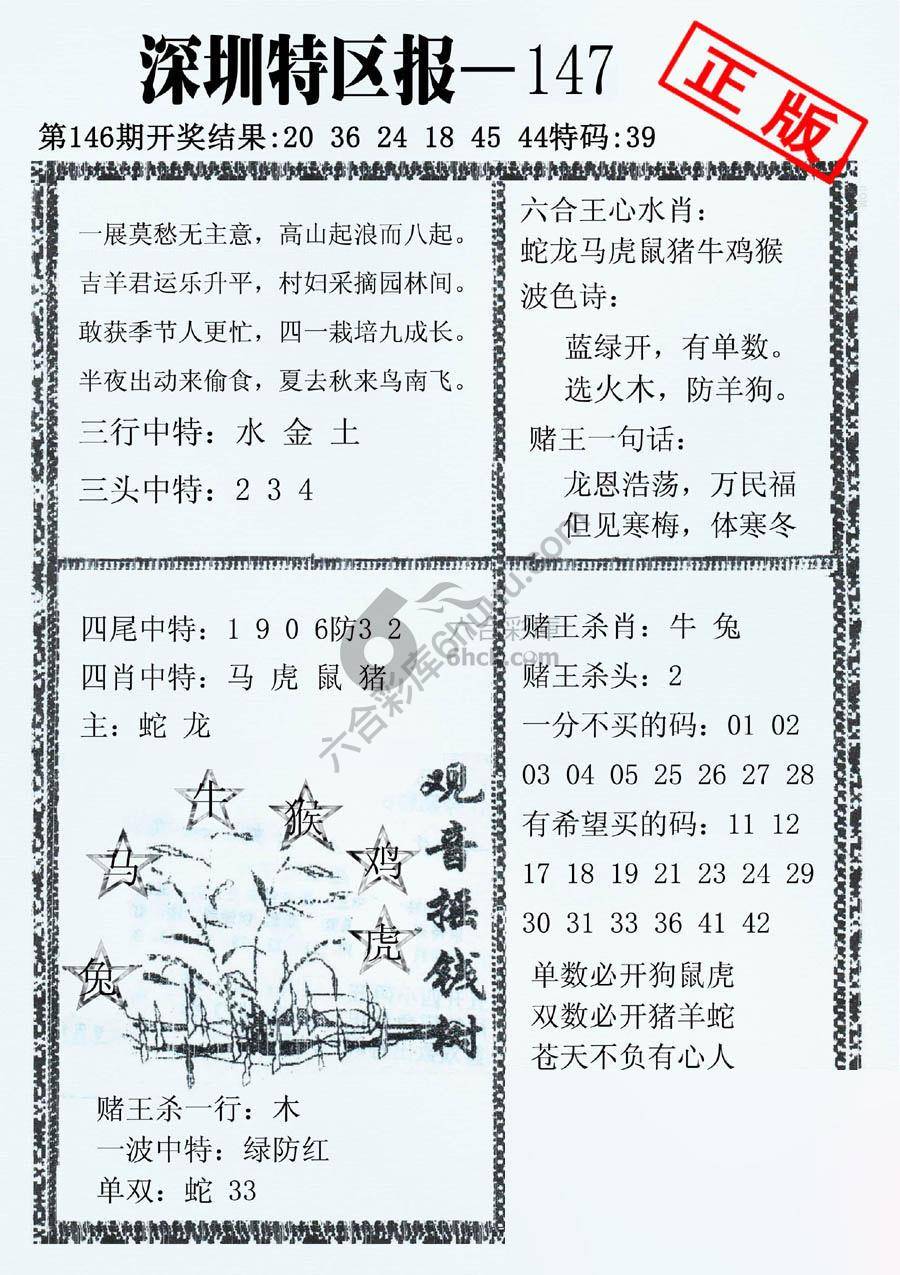 深圳特区报—147
正版
第146期开奖结果:20 36 24 18 45 44特码:39
一展莫愁无主意，高山起浪而八起。
吉羊君运乐升平，村妇采摘园林间。
敢获季节人更忙，四一栽培九成长。
半夜出动来偷食，夏去秋来鸟南飞。
三行中特：水 金 土
三头中特：2 3 4
六合王心水肖：
蛇龙马虎鼠猪牛鸡猴
波色诗：
蓝绿开，有单数。
选火木，防羊狗。
赌王一句话：
龙恩浩荡，万民福
但见寒梅，体寒冬
四尾中特：1 9 0 6防3 2
四肖中特：马 虎 鼠 猪
主：蛇 龙
牛
猴
马
鸡
虎
兔
观音摇钱树
赌王杀一行：木
一波中特：绿防红
单双：蛇 33
赌王杀肖：牛 兔
赌王杀头：2
一分不买的码：01 02
03 04 05 25 26 27 28
有希望买的码：11 12
17 18 19 21 23 24 29
30 31 33 36 41 42
单数必开狗鼠虎
双数必开猪羊蛇
苍天不负有心人
六合彩库6hutu.com
六合彩庫
6hck.com